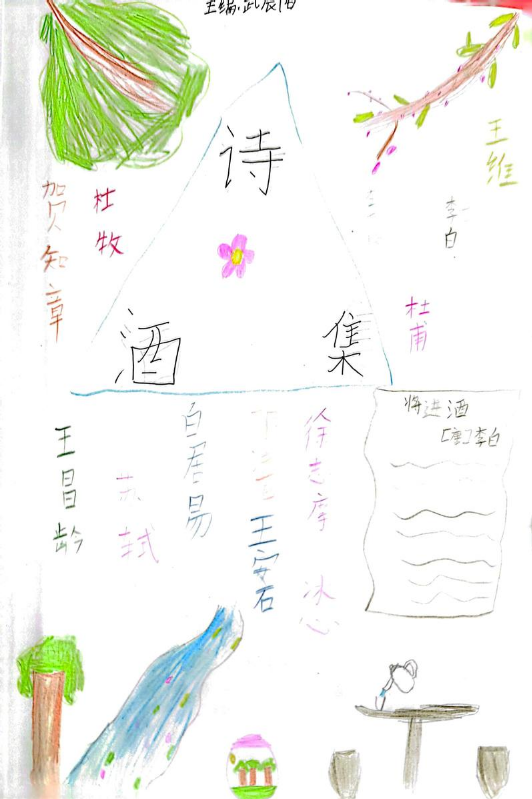 主编:武辰阳
诗
酒
集
贺知章
杜牧
李白
王维
杜甫
王昌龄
白居易
王安石
徐志摩
冰心
将进酒
[唐]李白